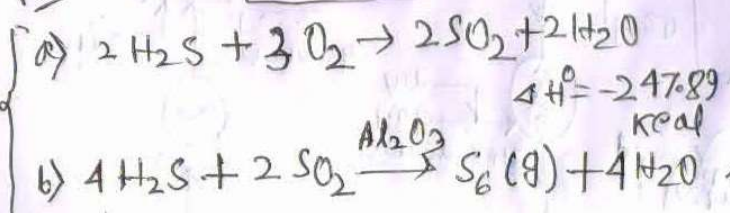 a) 2 H2S + 3 O2 → 2SO2 + 2H2O
ΔH° = -247.89 kcal
b) 4 H2S + 2 SO2 Al2O3→ S6 (g) + 4H2O